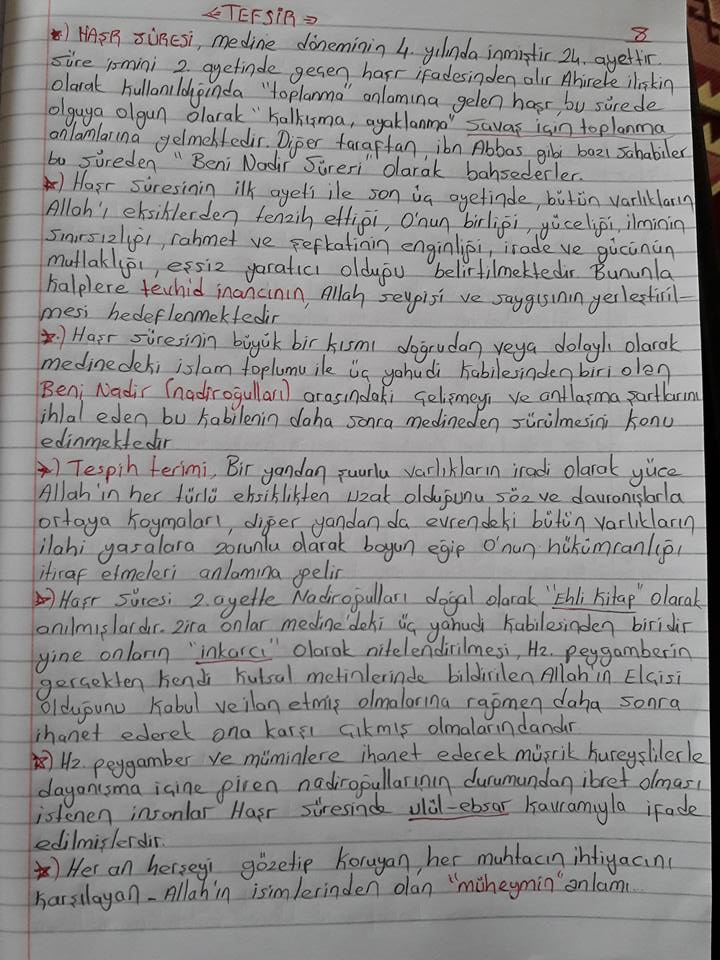 <= TEFSİR =>
8
*) HAŞR SÛRESİ, medine döneminin 4. yılında inmiştir 24. ayettir.
Sûre ismini 2. ayetinde geçen haşr ifadesinden alır Ahirete ilişkin
olarak kullanıldığında "toplanma" anlamına gelen haşr, bu sûrede
olguya olgun olarak "kalkışma, ayaklanma" savaş için toplanma
anlamlarına gelmektedir. Diğer taraftan, ibn Abbas gibi bazı sahabiler
bu sûreden "Beni Nadir Sûresi" olarak bahsederler.
*) Haşr Sûresinin ilk ayeti ile son üç ayetinde, bütün varlıkların
Allah'ı eksiklerden tenzih ettiği, O'nun birliği, yüceliği, ilminin
sınırsızlığı, rahmet ve şefkatinin enginliği, irade ve gücünün
mutlaklığı, eşsiz yaratıcı olduğu belirtilmektedir. Bununla
kalplere tevhid inancının, Allah sevgisi ve saygısının yerleştiril-
mesi hedeflenmektedir
*.) Haşr Sûresinin büyük bir kısmı doğrudan veya dolaylı olarak
medinedeki islam toplumu ile üç yahudi kabilesinden biri olan
Beni Nadir (nadiroğulları) arasındaki gelişmeyi ve antlaşma şartlarını
ihlal eden bu kabilenin daha sonra medineden sürülmesini konu
edinmektedir
*) Tespih terimi, Bir yandan şuurlu varlıkların iradi olarak yüce
Allah'ın her türlü eksiklikten uzak olduğunu söz ve davranışlarla
ortaya koymaları, diğer yandan da evrendeki bütün varlıkların
ilahi yasalara zorunlu olarak boyun eğip O'nun hükümranlığı
itiraf etmeleri anlamına gelir
*) Haşr Sûresi 2. ayette Nadiroğulları doğal olarak "Ehli Kitap" olarak
anılmışlardır. Zira onlar medine'deki üç yahudi kabilesinden biridir
yine onların "inkarcı" olarak nitelendirilmesi, Hz. peygamberin
gerçekten kendi kutsal metinlerinde bildirilen Allah'ın Elçisi
olduğunu kabul ve ilan etmiş olmalarına rağmen daha sonra
ihanet ederek ona karşı çıkmış olmalarındandır
*) Hz. peygamber ve müminlere ihanet ederek müşrik kureyşlilerle
dayanışma içine giren nadiroğullarının durumundan ibret olması
istenen insanlar Haşr sûresinde ulül-ebsar kavramıyla ifade
edilmişlerdir.
*) Her an herşeyi gözetip koruyan, her muhtacın ihtiyacını
karşılayan - Allah'ın isimlerinden olan "müheymin" anlamı...